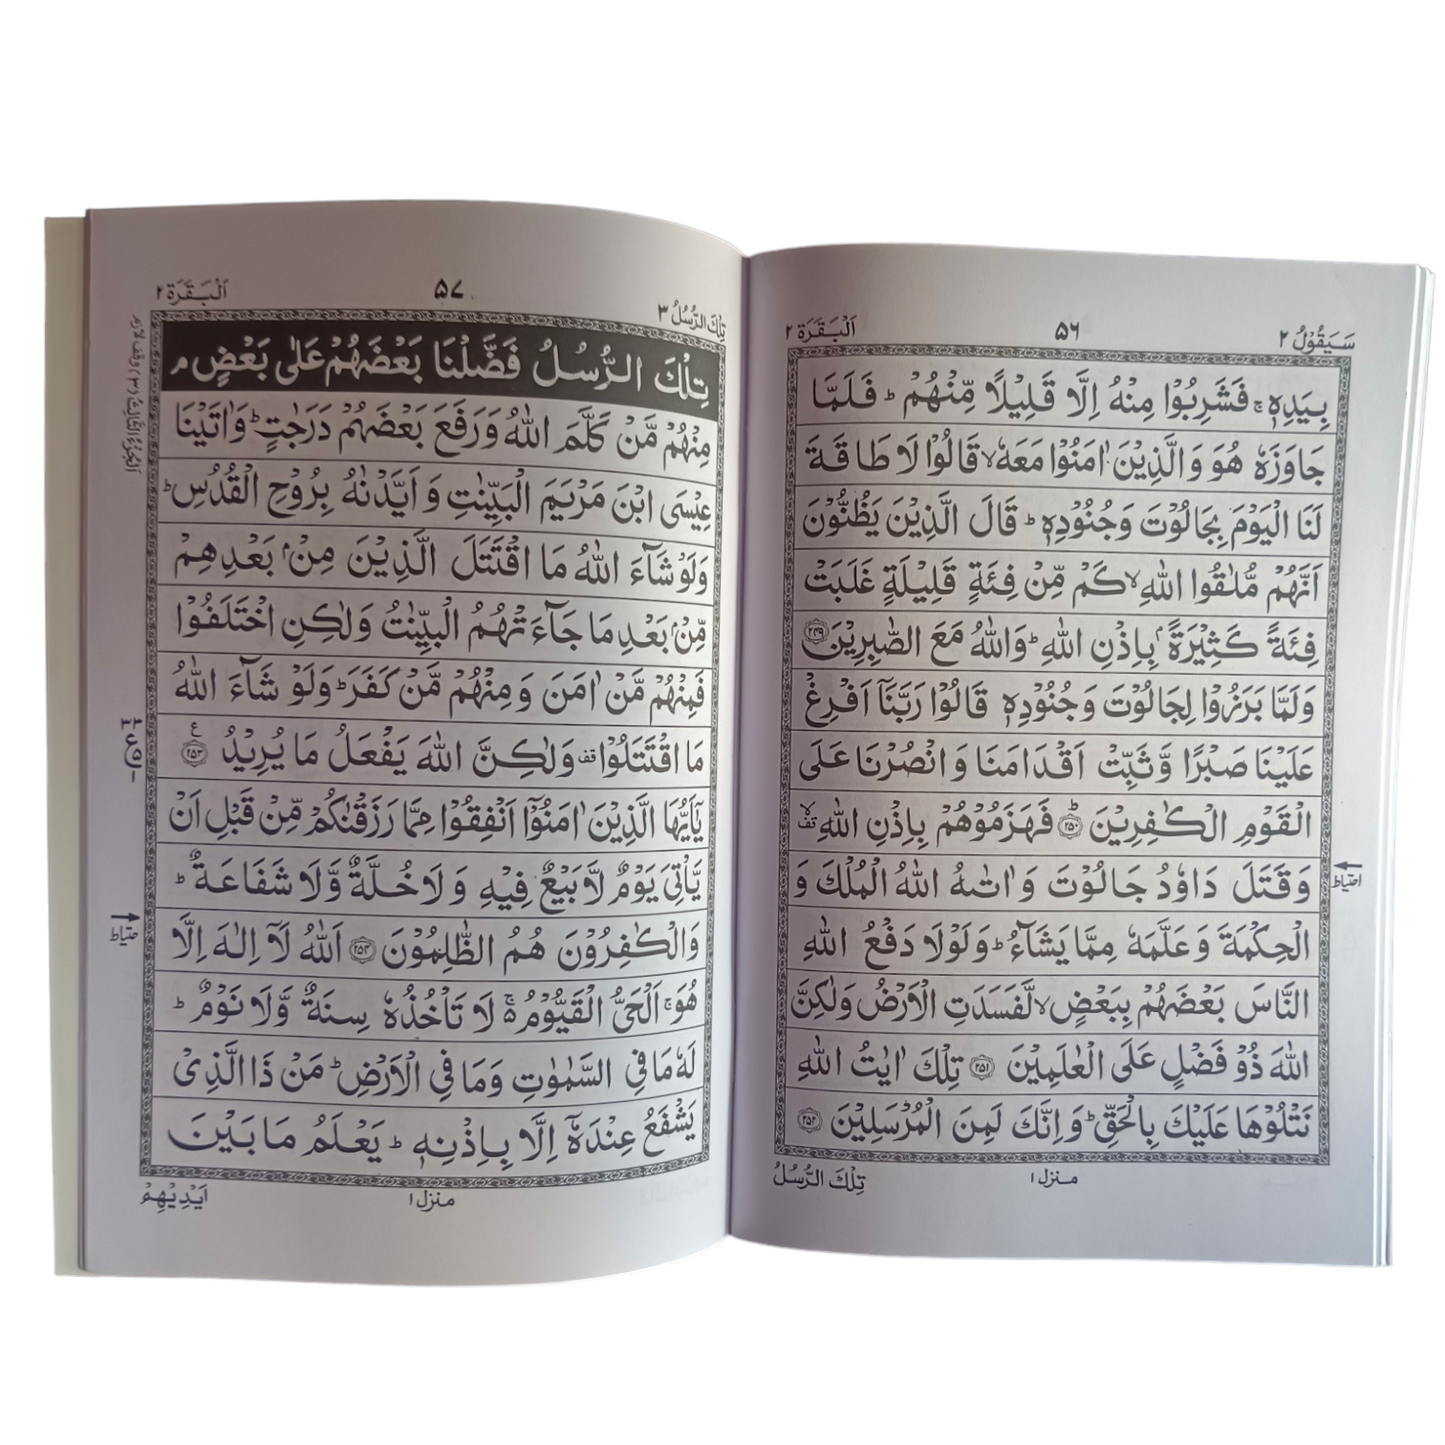 سَيَقُوْلُ ٢
٥٦
اَلْبَقَرَة ٢
بِيَدِهٖ ۚ فَشَرِبُوْا مِنْهُ اِلَّا قَلِيْلًا مِّنْهُمْ ؕ فَلَمَّا
جَاوَزَهٗ هُوَ وَالَّذِيْنَ اٰمَنُوْا مَعَهٗ ۙ قَالُوْا لَا طَاقَةَ
لَنَا الْيَوْمَ بِجَالُوْتَ وَجُنُوْدِهٖ ؕ قَالَ الَّذِيْنَ يَظُنُّوْنَ
اَنَّهُمْ مُّلٰقُوا اللّٰهِ ۙ كَمْ مِّنْ فِئَةٍ قَلِيْلَةٍ غَلَبَتْ
فِئَةً كَثِيْرَةًۢ بِاِذْنِ اللّٰهِ ؕ وَاللّٰهُ مَعَ الصّٰبِرِيْنَ ٢٤٩
وَلَمَّا بَرَزُوْا لِجَالُوْتَ وَجُنُوْدِهٖ قَالُوْا رَبَّنَاۤ اَفْرِغْ
عَلَيْنَا صَبْرًا وَّثَبِّتْ اَقْدَامَنَا وَانْصُرْنَا عَلَى
الْقَوْمِ الْكٰفِرِيْنَ ؕ ٢٥٠ فَهَزَمُوْهُمْ بِاِذْنِ اللّٰهِ ۙ قف
وَقَتَلَ دَاوٗدُ جَالُوْتَ وَاٰتٰىهُ اللّٰهُ الْمُلْكَ وَ
الْحِكْمَةَ وَعَلَّمَهٗ مِمَّا يَشَآءُ ؕ وَلَوْلَا دَفْعُ اللّٰهِ
النَّاسَ بَعْضَهُمْ بِبَعْضٍ ۙ لَّفَسَدَتِ الْاَرْضُ وَلٰكِنَّ
اللّٰهَ ذُوْ فَضْلٍ عَلَى الْعٰلَمِيْنَ ٢٥١ تِلْكَ اٰيٰتُ اللّٰهِ
نَتْلُوْهَا عَلَيْكَ بِالْحَقِّ ؕ وَاِنَّكَ لَمِنَ الْمُرْسَلِيْنَ ٢٥٢
احتیاط
منزل ١
تِلْكَ الرُّسُلُ
تِلْكَ الرُّسُلُ ٣
٥٧
اَلْبَقَرَة ٢
تِلْكَ الرُّسُلُ فَضَّلْنَا بَعْضَهُمْ عَلٰى بَعْضٍ ۘ
مِنْهُمْ مَّنْ كَلَّمَ اللّٰهُ وَرَفَعَ بَعْضَهُمْ دَرَجٰتٍ ؕ وَاٰتَيْنَا
عِيْسَى ابْنَ مَرْيَمَ الْبَيِّنٰتِ وَاَيَّدْنٰهُ بِرُوْحِ الْقُدُسِ ؕ
وَلَوْ شَآءَ اللّٰهُ مَا اقْتَتَلَ الَّذِيْنَ مِنْۢ بَعْدِهِمْ
مِّنْۢ بَعْدِ مَا جَآءَتْهُمُ الْبَيِّنٰتُ وَلٰكِنِ اخْتَلَفُوْا
فَمِنْهُمْ مَّنْ اٰمَنَ وَمِنْهُمْ مَّنْ كَفَرَ ؕ وَلَوْ شَآءَ اللّٰهُ
مَا اقْتَتَلُوْا قف وَلٰكِنَّ اللّٰهَ يَفْعَلُ مَا يُرِيْدُ ٢٥٣ ع
يٰۤاَيُّهَا الَّذِيْنَ اٰمَنُوْۤا اَنْفِقُوْا مِمَّا رَزَقْنٰكُمْ مِّنْ قَبْلِ اَنْ
يَّاْتِيَ يَوْمٌ لَّا بَيْعٌ فِيْهِ وَلَا خُلَّةٌ وَّلَا شَفَاعَةٌ ؕ
وَالْكٰفِرُوْنَ هُمُ الظّٰلِمُوْنَ ٢٥٤ اَللّٰهُ لَاۤ اِلٰهَ اِلَّا
هُوَ ۚ اَلْحَيُّ الْقَيُّوْمُ ۚ۬ لَا تَاْخُذُهٗ سِنَةٌ وَّلَا نَوْمٌ ؕ
لَهٗ مَا فِي السَّمٰوٰتِ وَمَا فِي الْاَرْضِ ؕ مَنْ ذَا الَّذِيْ
يَشْفَعُ عِنْدَهٗۤ اِلَّا بِاِذْنِهٖ ؕ يَعْلَمُ مَا بَيْنَ
اَلْجُزْءُ الثَّالِثُ (٣) وقف لازم
منزل ١
اَيْدِيْهِمْ